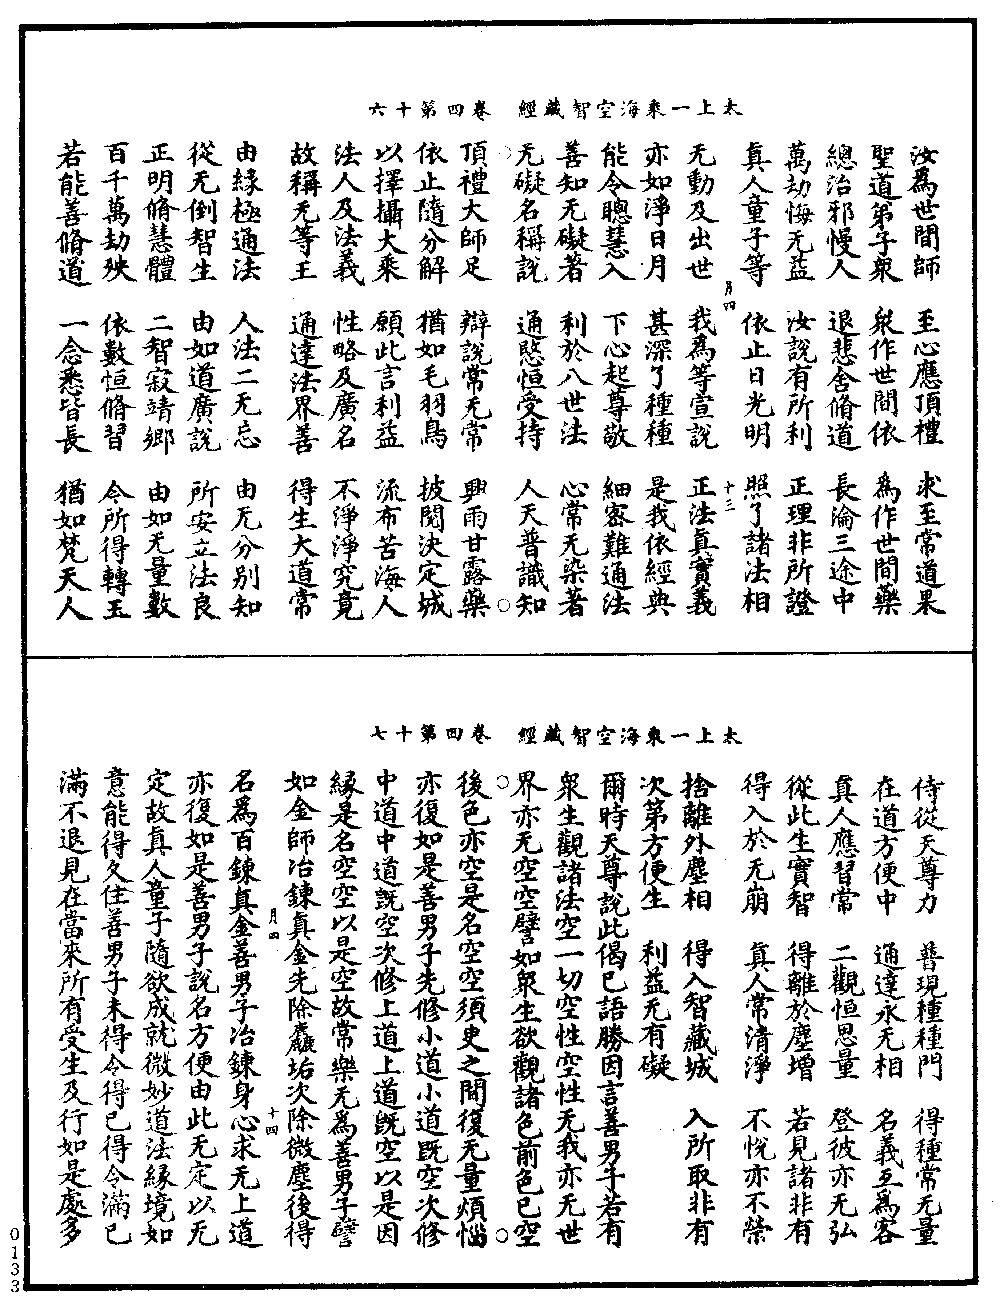 太上一乘海空智藏經　卷四第十六
汝為世間師　至心應頂禮　求至常道果
聖道第子眾　眾作世間依　為作世間藥
總治邪慢人　退悲舍脩道　長淪三途中
萬劫悔无益　汝說有所利　正理非所證
真人童子等　依止日光明　照了諸法相
月四　十三
无動及出世　我為等宣說　正法真實義
亦如淨日月　甚深了種種　是我依經典
能令聰慧入　下心起尊敬　細密難通法
善知无礙著　利於八世法　心常无染著
无礙名稱說　通愍恒受持　人天普識知
頂禮大師足　辯說常无常　興雨甘露藥
依止隨分解　猶如毛羽鳥　披閱決定城
以擇攝大乘　願此言利益　流布苦海人
法人及法義　性略及廣名　不淨淨究竟
故稱无等王　通達法界善　得生大道常
由緣極通法　人法二无忘　由无分別知
從无倒智生　由如道廣說　所安立法良
正明脩慧體　二智寂靖鄉　由如无量數
百千萬劫殃　依數恒脩習　令所得轉玉
若能善脩道　一念悉皆長　猶如梵天人
太上一乘海空智藏經　卷四第十七
侍從天尊力　普現種種門　得種常无量
在道方便中　通達永无相　名義互為客
真人應習常　二觀恒思量　登彼亦无弘
從此生實智　得離於塵增　若見諸非有
得入於无崩　真人常清淨　不悅亦不榮
捨離外塵相　得入智藏城　入所取非有
次第方便生　利益无有礙
爾時天尊說此偈已語勝因言善男子若有
眾生觀諸法空一切空性空性无我亦无世
界亦无空空譬如眾生欲觀諸色前色已空
後色亦空是名空空須臾之間復无量煩惱
亦復如是善男子先修小道小道既空次修
中道中道既空次修上道上道既空以是因
緣是名空空以是空故常樂无為善男子譬
如金師冶鍊真金先除麤垢次除微塵後得
月四　十四
名為百鍊真金善男子冶鍊身心求无上道
亦復如是善男子說名方便由此无定以无
定故真人童子隨欲成就微妙道法緣境如
意能得久住善男子未得令得已得令滿已
滿不退見在當來所有受生及行如是處多
0133